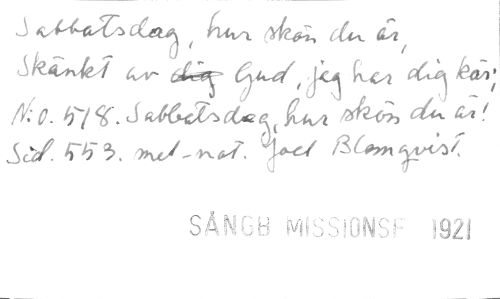 Sabbatsdag, hur skön du är,
Skänkt av dig Gud, jag har dig kär;
N:o. 518. Sabbatsdag, hur skön du är!
Sid. 553. met-not. Joel Blomqvist.
SÅNGB MISSIONSF 1921